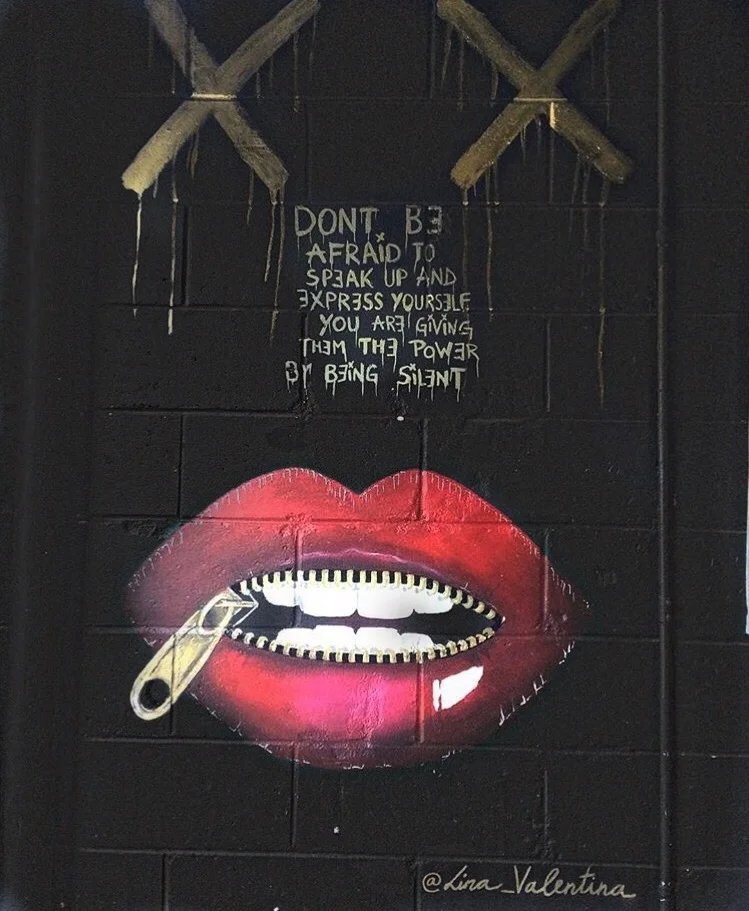 DONT BE
AFRAID TO
SPEAK UP AND
EXPRESS YOURSELF
YOU ARE GIVING
THEM THE POWER
BY BEING SILENT
@Lina_Valentina